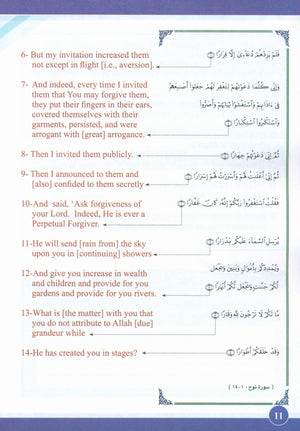 6- But my invitation increased them
not except in flight [i.e., aversion].
فَلَمْ يَزِدْهُمْ دُعَآءِىٓ إِلَّا فِرَارًا ۝
7- And indeed, every time I invited
them that You may forgive them,
they put their fingers in their ears,
covered themselves with their
garments, persisted, and were
arrogant with [great] arrogance.
وَإِنِّى كُلَّمَا دَعَوْتُهُمْ لِتَغْفِرَ لَهُمْ جَعَلُوٓا۟ أَصَٰبِعَهُمْ
فِىٓ ءَاذَانِهِمْ وَٱسْتَغْشَوْا۟ ثِيَابَهُمْ وَأَصَرُّوا۟
وَٱسْتَكْبَرُوا۟ ٱسْتِكْبَارًا ۝
8- Then I invited them publicly.
ثُمَّ إِنِّى دَعَوْتُهُمْ جِهَارًا ۝
9- Then I announced to them and
[also] confided to them secretly
ثُمَّ إِنِّىٓ أَعْلَنتُ لَهُمْ وَأَسْرَرْتُ لَهُمْ إِسْرَارًا ۝
10-And said, 'Ask forgiveness of
your Lord. Indeed, He is ever a
Perpetual Forgiver.
فَقُلْتُ ٱسْتَغْفِرُوا۟ رَبَّكُمْ إِنَّهُۥ كَانَ غَفَّارًا ۝
11-He will send [rain from] the sky
upon you in [continuing] showers
يُرْسِلِ ٱلسَّمَآءَ عَلَيْكُم مِّدْرَارًا ۝
12-And give you increase in wealth
and children and provide for you
gardens and provide for you rivers.
وَيُمْدِدْكُم بِأَمْوَٰلٍ وَبَنِينَ وَيَجْعَل
لَّكُمْ جَنَّٰتٍ وَيَجْعَل لَّكُمْ أَنْهَٰرًا ۝
13-What is [the matter] with you that
you do not attribute to Allah [due]
grandeur while
مَّا لَكُمْ لَا تَرْجُونَ لِلَّهِ وَقَارًا ۝
14-He has created you in stages?
وَقَدْ خَلَقَكُمْ أَطْوَارًا ۝
( سورة نوح ، ١ - ١٤ )
11